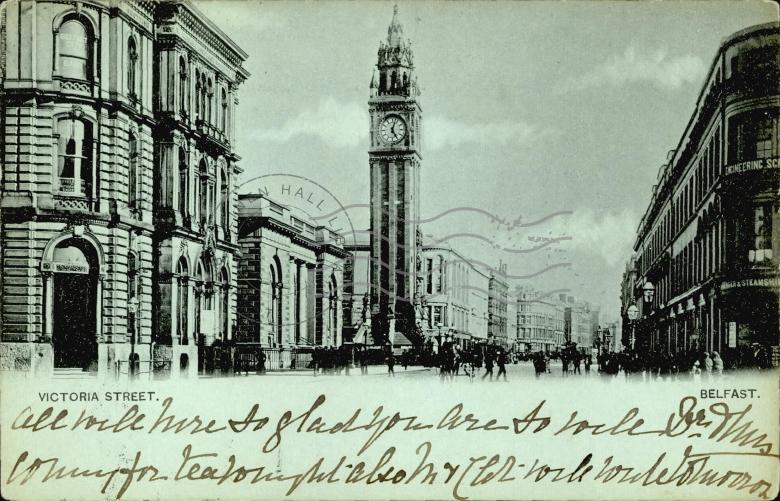 N HALL
ENGINEERING SC
& STEAMSH
VICTORIA STREET.
BELFAST.
All well here so glad you are so well Dr & Mrs
coming for tea tonight also Mr & will